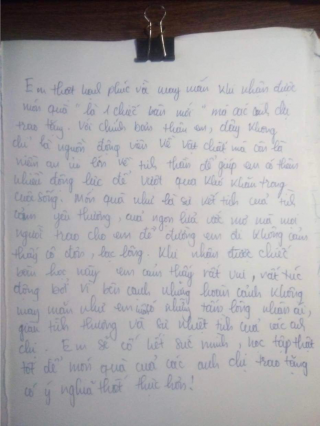 Em thật hạnh phúc và may mắn khi nhận được
món quà "là 1 chiếc bàn mới" mà các anh chị
trao tặng. Với chính bản thân em, đây không
chỉ là nguồn động viên về vật chất mà còn là
niềm an ủi lớn về tinh thần để giúp em có thêm
nhiều động lực để vượt qua khó khăn trong
cuộc sống. Món quà như là sự kết tinh của tình
cảm yêu thương, của ngọn lửa ước mơ mà mọi
người trao cho em để đường em đi không cảm
thấy cô đơn, lạc lõng. Khi nhận được chiếc
bàn học này em cảm thấy rất vui, rất xúc
động bởi vì bên cạnh những hoàn cảnh không
may mắn như em có những tấm lòng nhân ái,
giàu tình thương và sự nhiệt tình của các anh
chị. Em sẽ cố hết sức mình, học tập thật
tốt để món quà của các anh chị trao tặng
có ý nghĩa thật thức hơn!